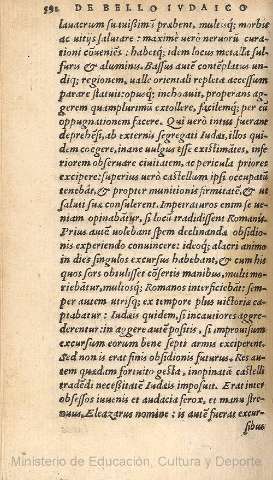 592 DE BELLO IVDAICO
lauacrum suauissimũ præbent, mulcẽtq; morbis
ac uitijs salutare: maximè uerò neruorũ curationi
cõueniẽs: habetq; idem locus metalla sulfuris
& aluminis. Bassus autẽ cõtẽplatus undiq;
regionem, ualle orientali repleta accessum
parare statuit: opusq; inchoauit, properans aggerem
quamplurimũ extollere, facilemq; per eũ
oppugnationem facere. Qui uerò intus fuerant
deprehẽsi, ab externis segregati Iudæi, illos quidem
coegere, inane uulgus esse existimãtes, inferiorem
obseruare ciuitatem, ac pericula priores
excipere: superius uerò castellum ipsi occupatũ
tenebãt, & propter munitionis firmitatẽ, & ut
saluti suæ consulerent. Impetraturos enim se ueniam
opinabãtur, si locũ tradidissent Romanis.
Prius autẽ uolebant spem declinandæ obsidionis
experiendo conuincere: ideoq; alacri animo
in dies singulos excursus habebant, & cum his
quos fors obtulisset cõsertis manibus, multi moriebãtur,
multosq; Romanos interficiebãt: semper
autem utrisq; ex tempore plus uictoria captabatur:
Iudæis quidem, si incautiores aggrederentur:
in aggere autẽ positis, si improuisum
excursum eorum bene septi armis exciperent.
Sed non is erat finis obsidionis futurus. Res autem
quædam fortuito gesta, inopinatã castelli
tradẽdi necessitatẽ Iudæis imposuit. Erat inter
obsessos iuuenis et audacia ferox, et manu strenuus,
Eleazarus nomine: is autẽ fuerat excur-
sibus
Ministerio de Educación, Cultura y Deporte